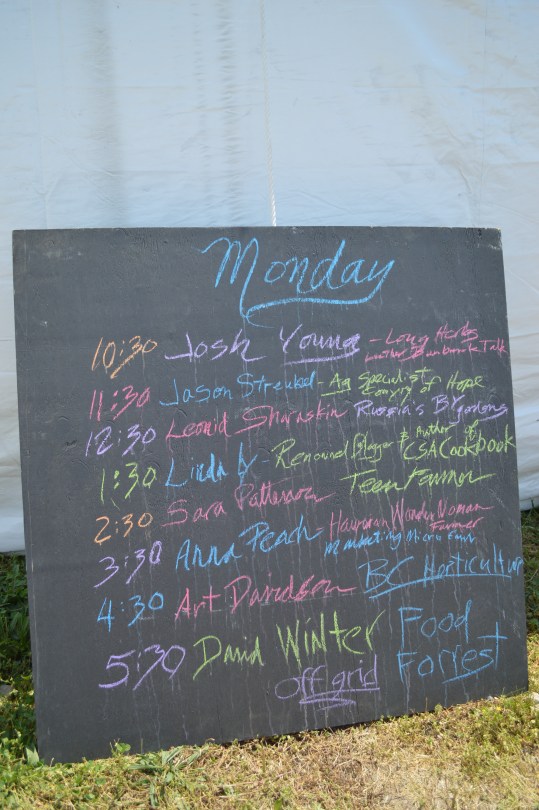 Monday
10:30 Josh Young - Long Herbs
Luther Burbank Talk
11:30 Jason Streubel - Ag Specialist
Convoy of Hope
12:30 Leonid Sharaskin Russia's BY Gardens
1:30 Linda Ly - Renowned Blogger & Author of
CSA Cookbook
2:30 Sara Patterson Teen Farmer
3:30 Anna Peach - Hawaiian Wonder Woman
Farmer
Marketing Micro Farm
4:30 Art Davidson BC Horticulture
5:30 David Winter Food
Forrest
Off grid